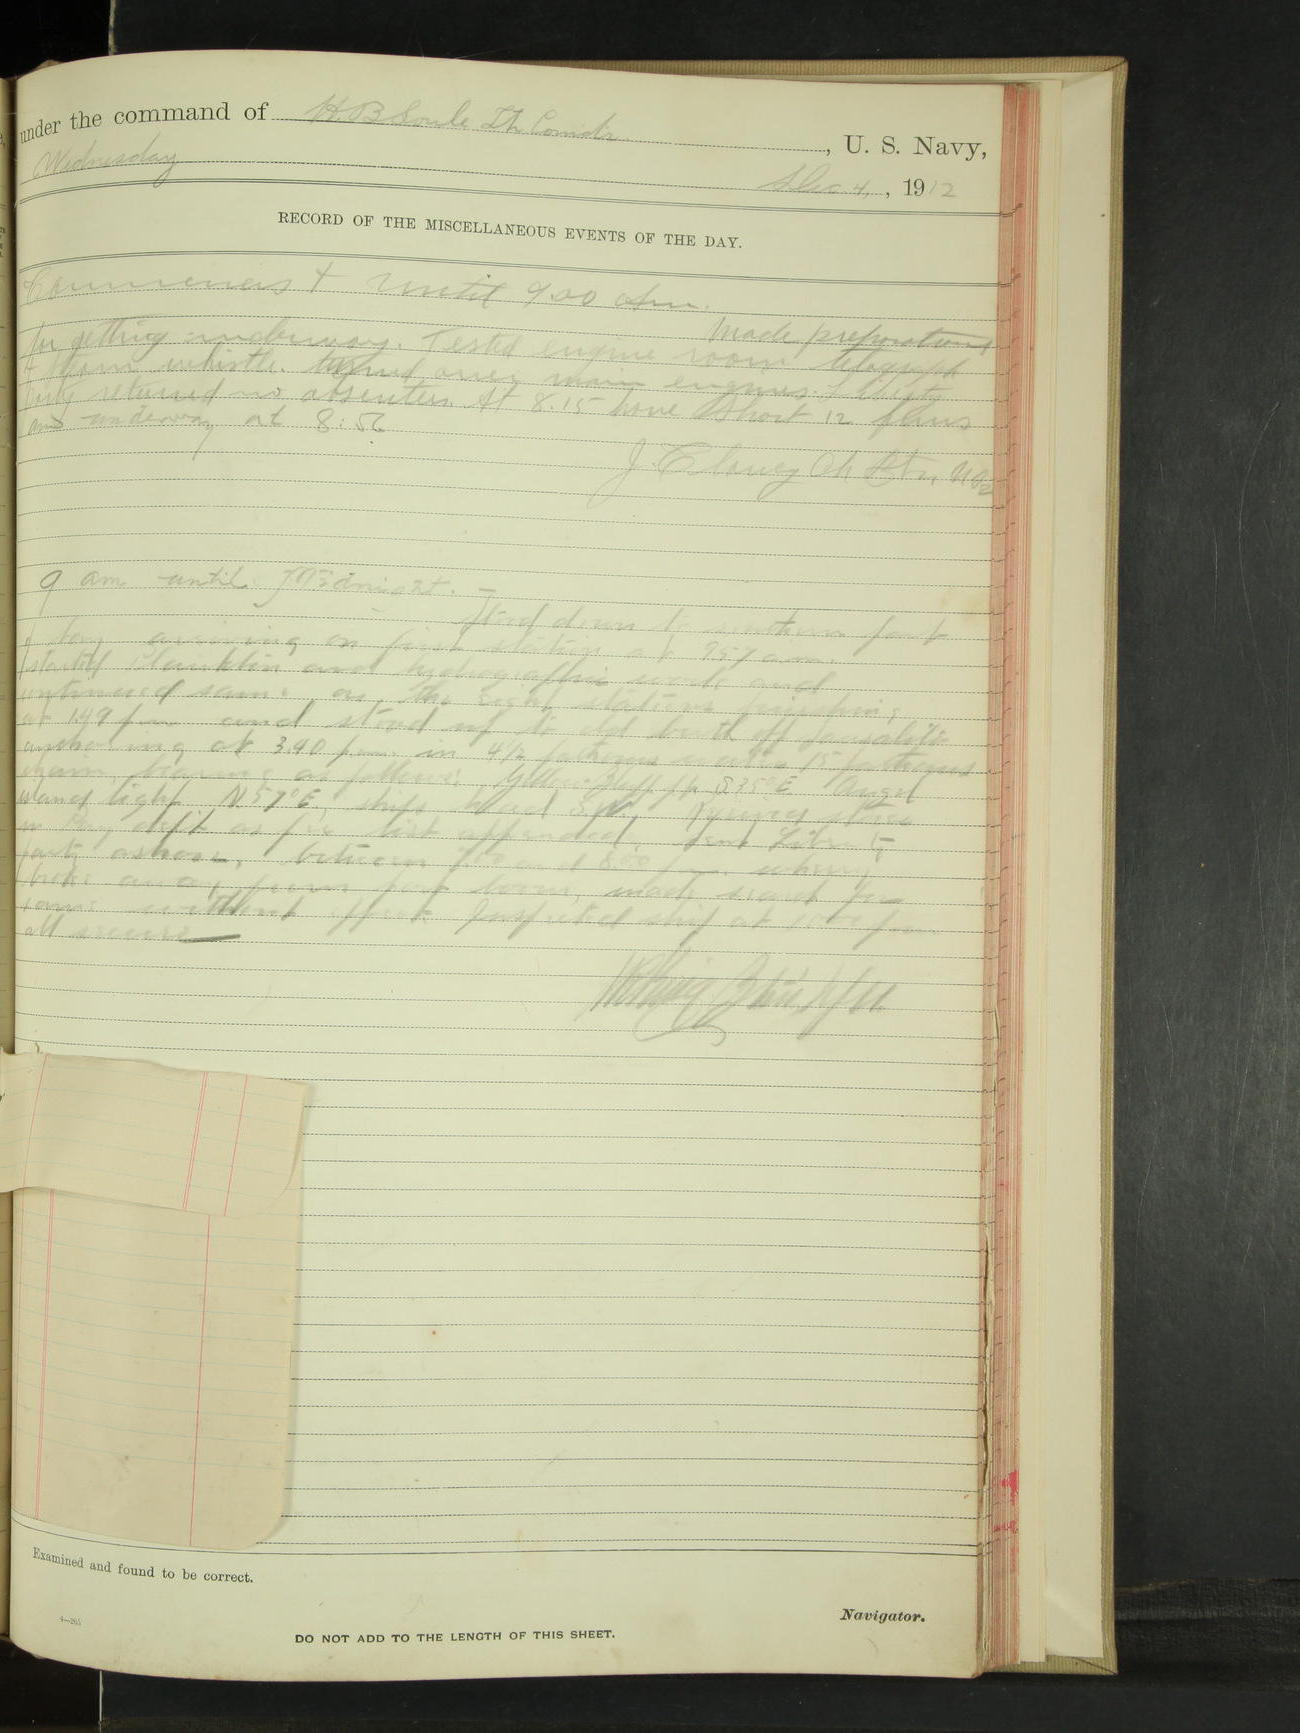 under the command of H. B. Soule Lt. Comdr. , U. S. Navy,
Wednesday Dec 4, , 1912
RECORD OF THE MISCELLANEOUS EVENTS OF THE DAY.
until 9.00 Am.
Made preparations
for getting underway. Tested engine room telegraph
+ whistle. turned over main engines. Liberty
party returned no absentees. At 8.15 hove short 12 fms
and underway at 8:56
J.
9 am until Midnight. —
Stood down to southern part
of bay arriving on first station at 9:57 am.
started plankton and hydrographic work and
continued same as the eight stations finishing
at 1:49 pm and stood up to old berth off Sausalito
anchoring at 3.40 p.m. in 4½ fathoms water 15 fathoms
chain, bearing as follows: Yellow Bluff S 35° E Angel
Island light N. 57° E, ships head S.W. Received stores
in Pay dep't as per list appended. Sent Liberty
party ashore, between 7.00 and 8.00 p.m. wherry
broke away from port boom, made search for
same without effect. Inspected ship at 10.00 pm
all secure
Examined and found to be correct.
4—265
Navigator.
DO NOT ADD TO THE LENGTH OF THIS SHEET.